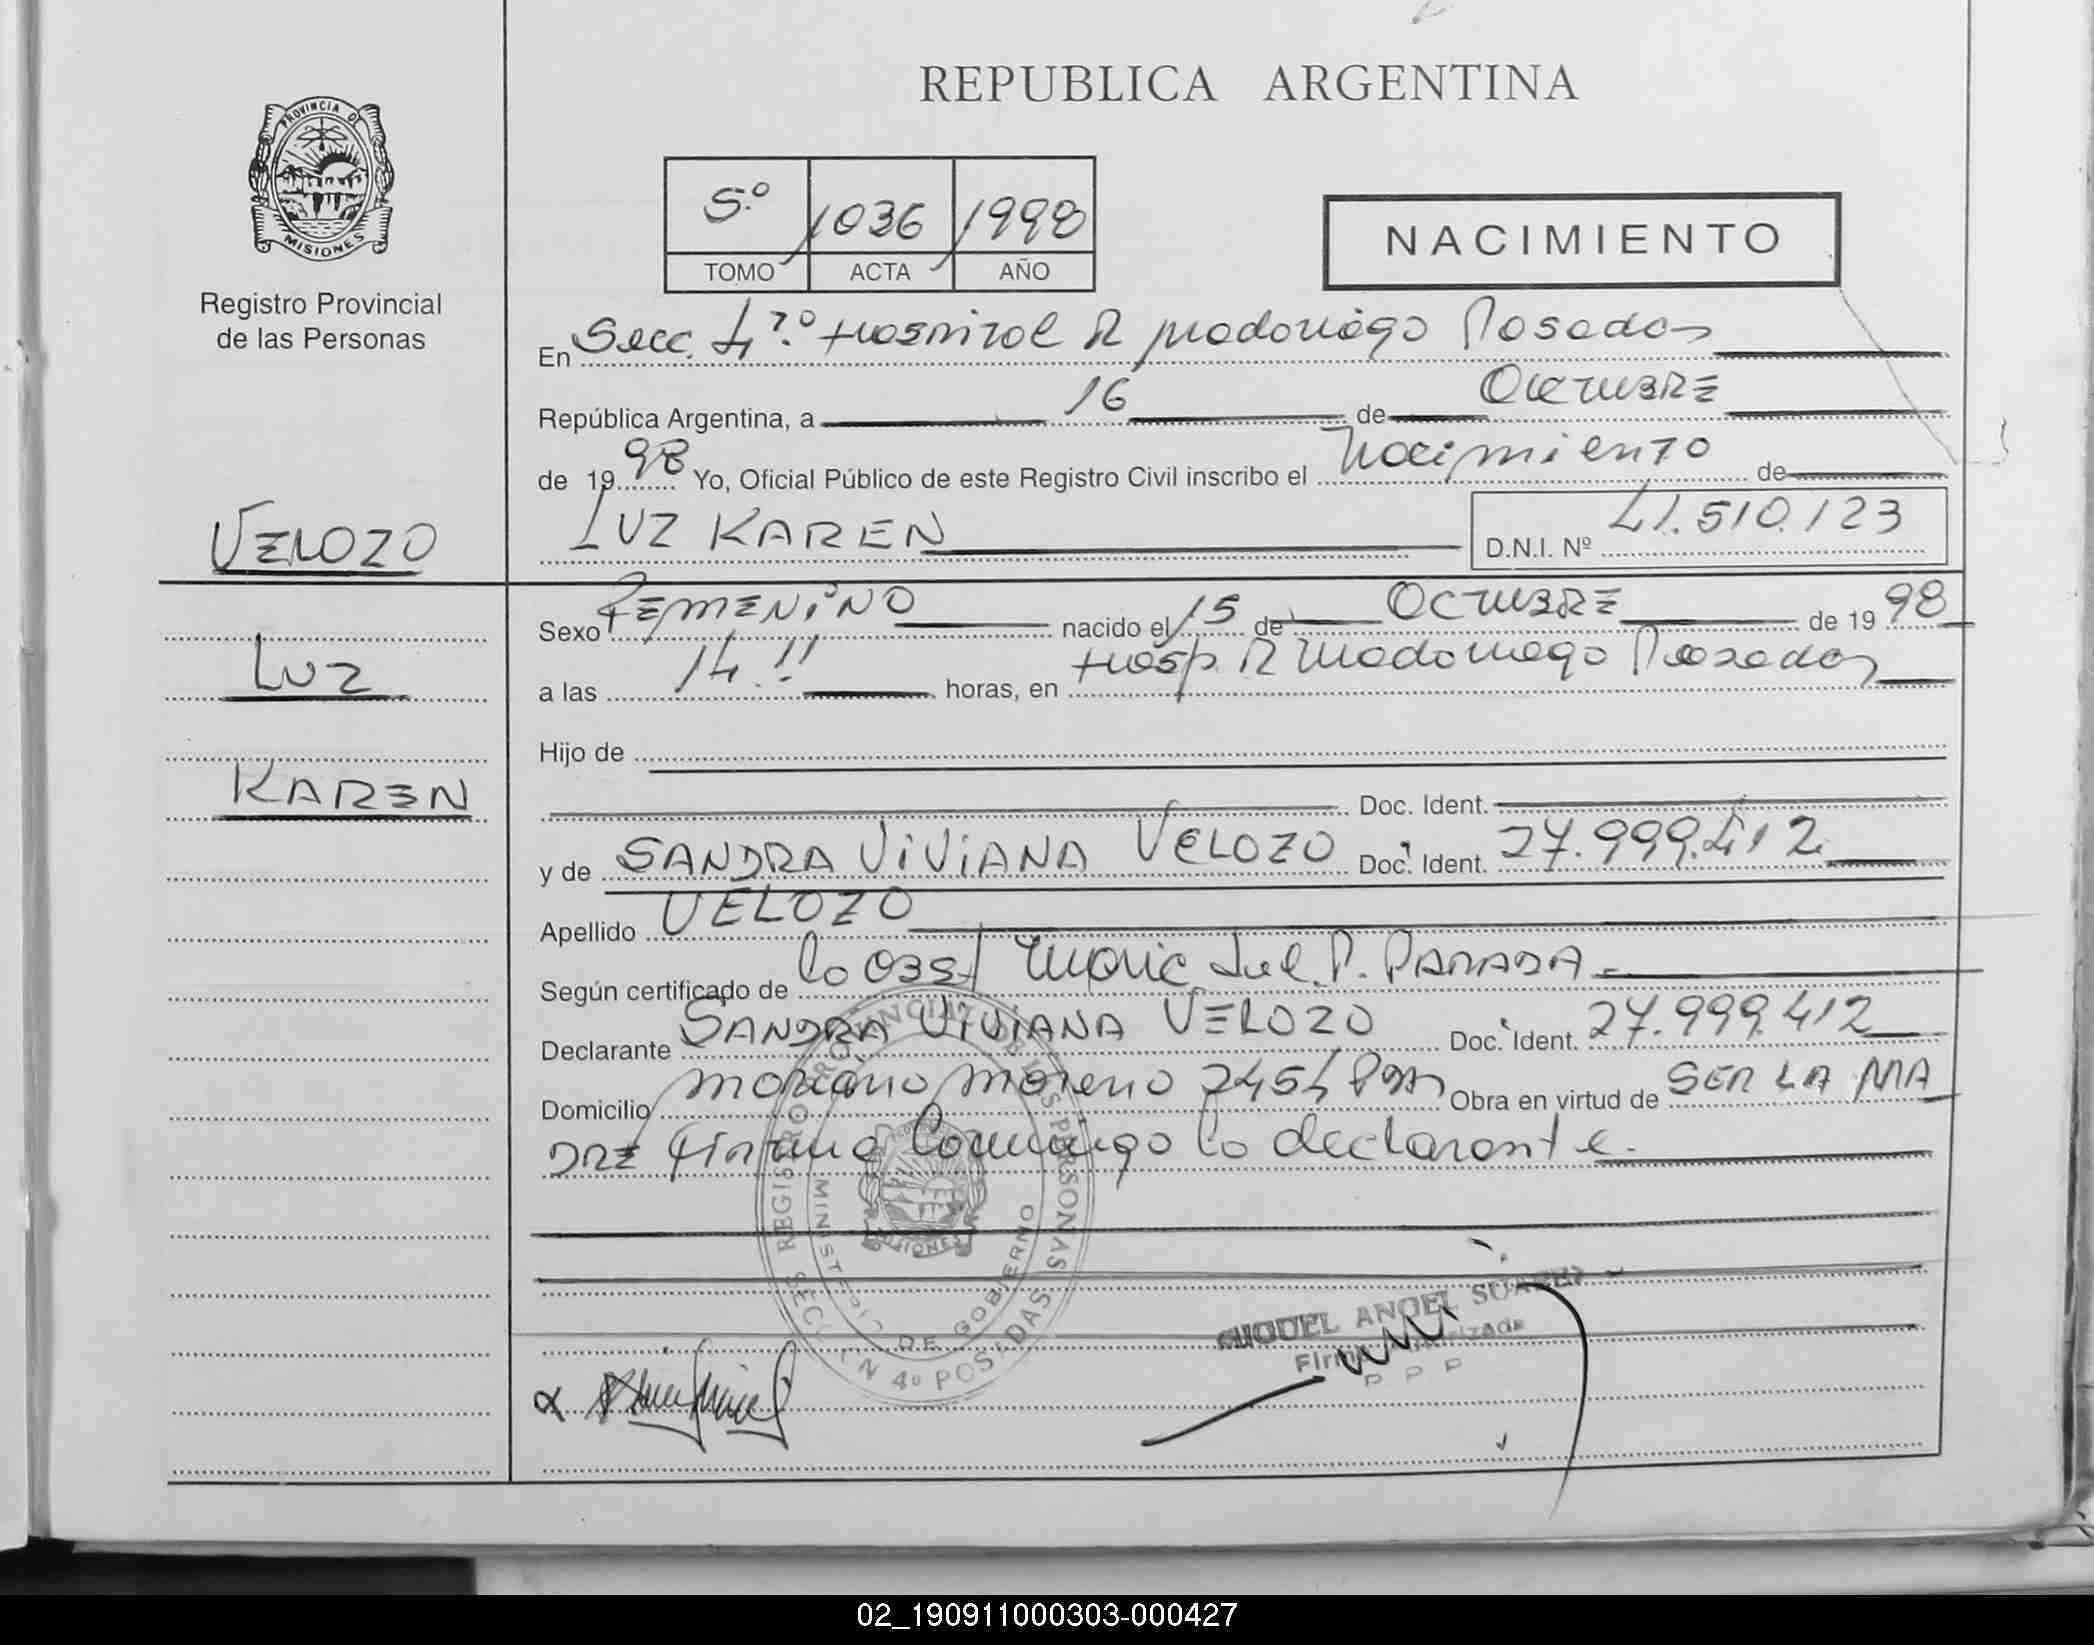 REPUBLICA ARGENTINA
PROVINCIA DE
MISIONES
Registro Provincial
de las Personas
5º 1036 1998
TOMO ACTA AÑO
NACIMIENTO
En Secc. 4º Hospital R Madariaga Posadas
República Argentina, a 16 de OCTUBRE
de 1998 Yo, Oficial Público de este Registro Civil inscribo el Nacimiento de
VELOZO
LUZ KAREN D.N.I. Nº 41.510.123
Sexo FEMENiNO nacido el 15 de OCTUBRE de 1998
LUZ
a las 14.!! horas, en Hosp. R Madariaga Posadas
Hijo de
KAREN
Doc. Ident.
y de SANDRA ViViANA VELOZO Doc. Ident. 27.999.412
Apellido VELOZO
Según certificado de la OBST P. PARADA
Declarante SANDRA ViViANA VELOZO Doc. Ident. 27.999.412
Domicilio Mariano Moreno 2454 Pdas Obra en virtud de SER LA MA
DRE Firma Conmigo la declarante.
REGISTRO PROVINCIAL DE LAS PERSONAS
MINISTERIO DE GOBIERNO
MISIONES
SECCION 4º POSADAS
MIGUEL ANGEL SUAREZ
Firma Autorizada
P P P
02_190911000303-000427